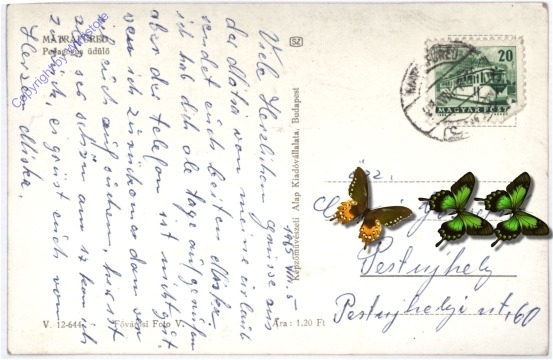 MÁTRAFÜRED
Pedagógus üdülő
Copyright by
SZ
Viele Herzlichen grüsse aus
der Mátra von meine urlaub
sendet euch besten Miska.
ich hab dich ale tage aufgerufen
aber das telefon ist nicht gut
wen ich zurückom es dan wer
ich euch auf suchen, hir ist
ales ser schön am 17 kom ich
zurück, es grüst euch von
Herzen Miska.
1965 VIII. 5
Képzőművészeti Alap Kiadóvállalata, Budapest
V. 12-644
Fővárosi Foto V.
Ára: 1,20 Ft
20
MAGYAR POSTA
Pestujhely
Pestujhelyi ut 60